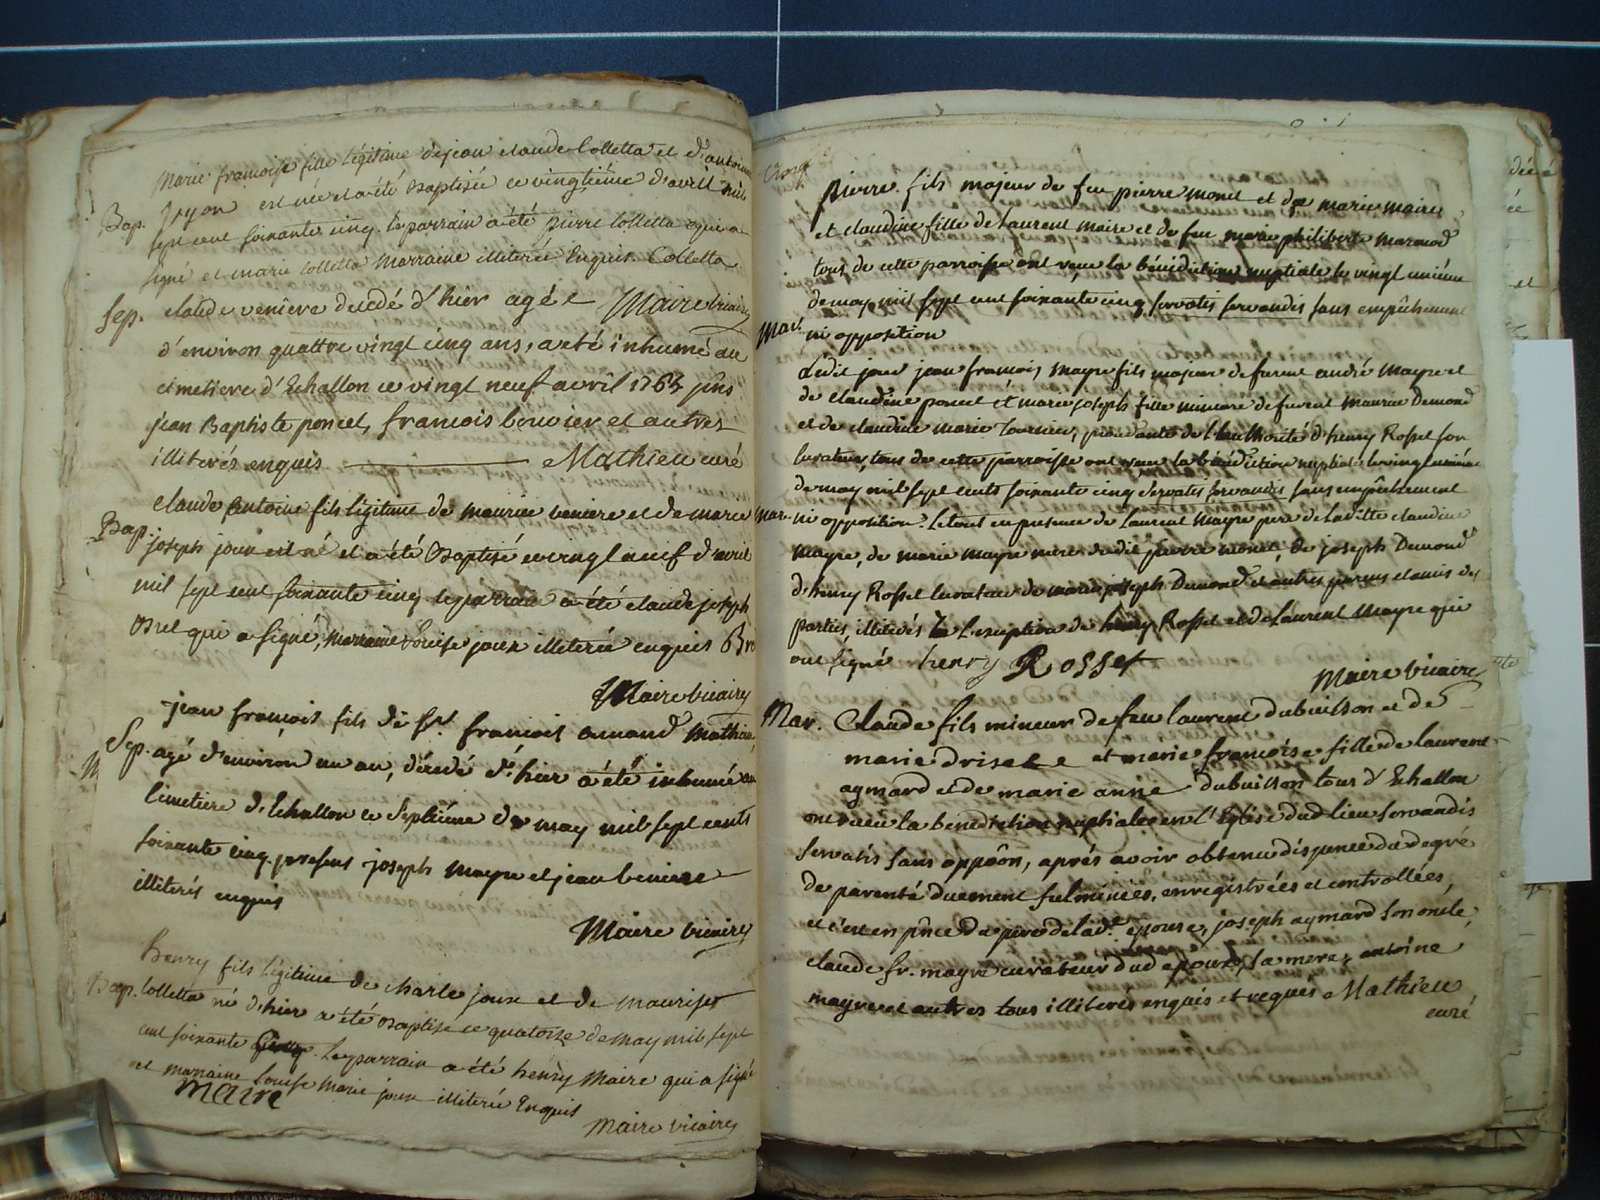 Marie francoise fille légitime de jean claude Colletta et d'antoine
Bap. Joyon est née et a été Baptisée ce vingtième d'avril mil
sept cent soixante cinq. le parrain a été pierre Colletta qui a
signé et marie Colletta Marraine illiterée Enquis. Colletta
Maire vicaire
Sep. claude veniere decedé d'hier agé
d'environ quattre vingt cinq ans, a eté inhumé au
cimetiere d'Echallon ce vingt neuf avril 1765 pñs
jean Baptiste poncet, francois bouvier et autres
illiterés enquis Mathieu curé
claude Antoine fils légitime de maurice veniere et de marie
Bap. joseph joux est né et a été Baptisé ce vingt neuf d'avril
mil sept cent soixante cinq le parrain a été claude joseph
qui a signé, marraine joux illiterée enquis
Maire vicaire
jean françois fils de Sr. francois armand Mathieu
Sep. agé d'environ un an, décédé d'hier a été inhumé au
Cimetiere d'Echallon ce septiéme de may mil sept cents
soixante cinq. presens joseph mayre et jean veniere
illiterés enquis
Maire vicaire
henry fils légitime de charle joux et de maurise
Bap. Colletta né d'hier a été Baptise ce quatorze de may mil sept
cent soixante cinq. le parrain a été henry Maire qui a signé
et marraine Louise Marie joux illiterée Enquis
Maire
Maire vicaire
pierre fils majeur de feu pierre monet et de marie maire
et claudine fille de Laurent maire et de feu marie philiberte
tous de cette parroisse ont reçu la bénédiction nuptiale le vingt uniéme
de may mil sept cent soixante cinq servatis servandis sans empêchement
Mar. ni opposition
Ledit jour jean francois Mayre fils majeur de furent andré Mayre et
de claudine poncet et marie joseph fille mineure de furent Maurice Dumond
et de claudine marie Tournier, procedante de l'authorité d'henry Rosset son
curateur, tous de cette parroisse ont reçu la bénédiction nuptiale le vingt uniéme
de may mil sept cents soixante cinq servatis servandis sans empêchement
Mar. ni opposition. Le tout en presence de Laurent Mayre pere de laditte claudine
mayre, de marie mayre mere dudit pierre monet, de joseph Dumond
d'henry Rosset curateur de marie joseph Dumond et autres parens et amis des
parties, illiterés à l'exception de henry Rosset et de Laurent Mayre qui
ont signé henry Rosset
Maire vicaire
Mar. Claude fils mineur de feu laurent dubuisson et de
marie et marie francoise fille de laurent
aymard et de marie anne dubuisson tous d'Echallon
ont reçu la bénédiction nuptiale en l'Eglise dud lieu servandis
servatis sans oppoôn, aprés avoir obtenu dispence du degré
de parenté duement fulminées, enregistrées et controllées,
et c'est en pñce du pere de lad. epouse, joseph aymard son oncle,
claude fr. mayre curateur dud epoux, sa mere, antoine
mayre et autres tous illiterés enquis et requis Mathieu
curé